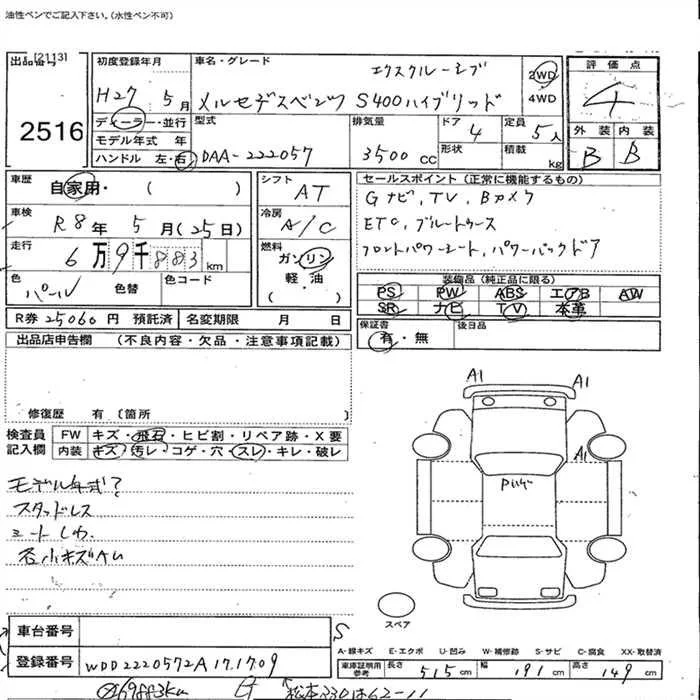 油性ペンでご記入下さい。(水性ペン不可)
出品番号 [2113]
2516
初度登録年月
H27 年 5月
車名・グレード
エクスクルーシブ
メルセデスベンツ S400ハイブリッド
2WD
4WD
評価点
4
外装 内装
B B
ディーラー・並行
モデル年式 年
ハンドル 左・右
型式
DAA-222057
排気量
3500 CC
ドア 4
形状
定員 5人
積載 kg
車歴
自家用・( )
車検
R8年 5月(25日)
走行
6万9千883 km
色 パール 色替
色コード
シフト
AT
冷房
A/C
燃料
ガソリン
軽・油
( )
セールスポイント(正常に機能するもの)
Gナビ,TV,Bカメラ
ETC,ブルートゥース
フロントパワーシート,パワーバックドア
装備品(純正品に限る)
PS PW ABS エアB AW
SR ナビ TV 本革
R券 25060円 預託済 名変期限 月 日
保証書
有・無
後日品
出品店申告欄 (不良内容・欠品・注意事項記載)
修復歴 有(箇所 )
検査員記入欄
FW キズ・飛石・ヒビ割・リペア跡・X要
内装 キズ・汚レ・コゲ・穴・スレ・キレ・破レ
モデル年式?
スタッドレス
シートしわ
A1
A1
A1
スペア
車台番号
登録番号
WDD2220572A171709
A-線キズ E-エクボ U-凹み W-補修跡 S-サビ C-腐食 XX-取替済
車庫証明用参考 長さ 515cm 幅 191cm 高さ 149cm
69883km
松本330